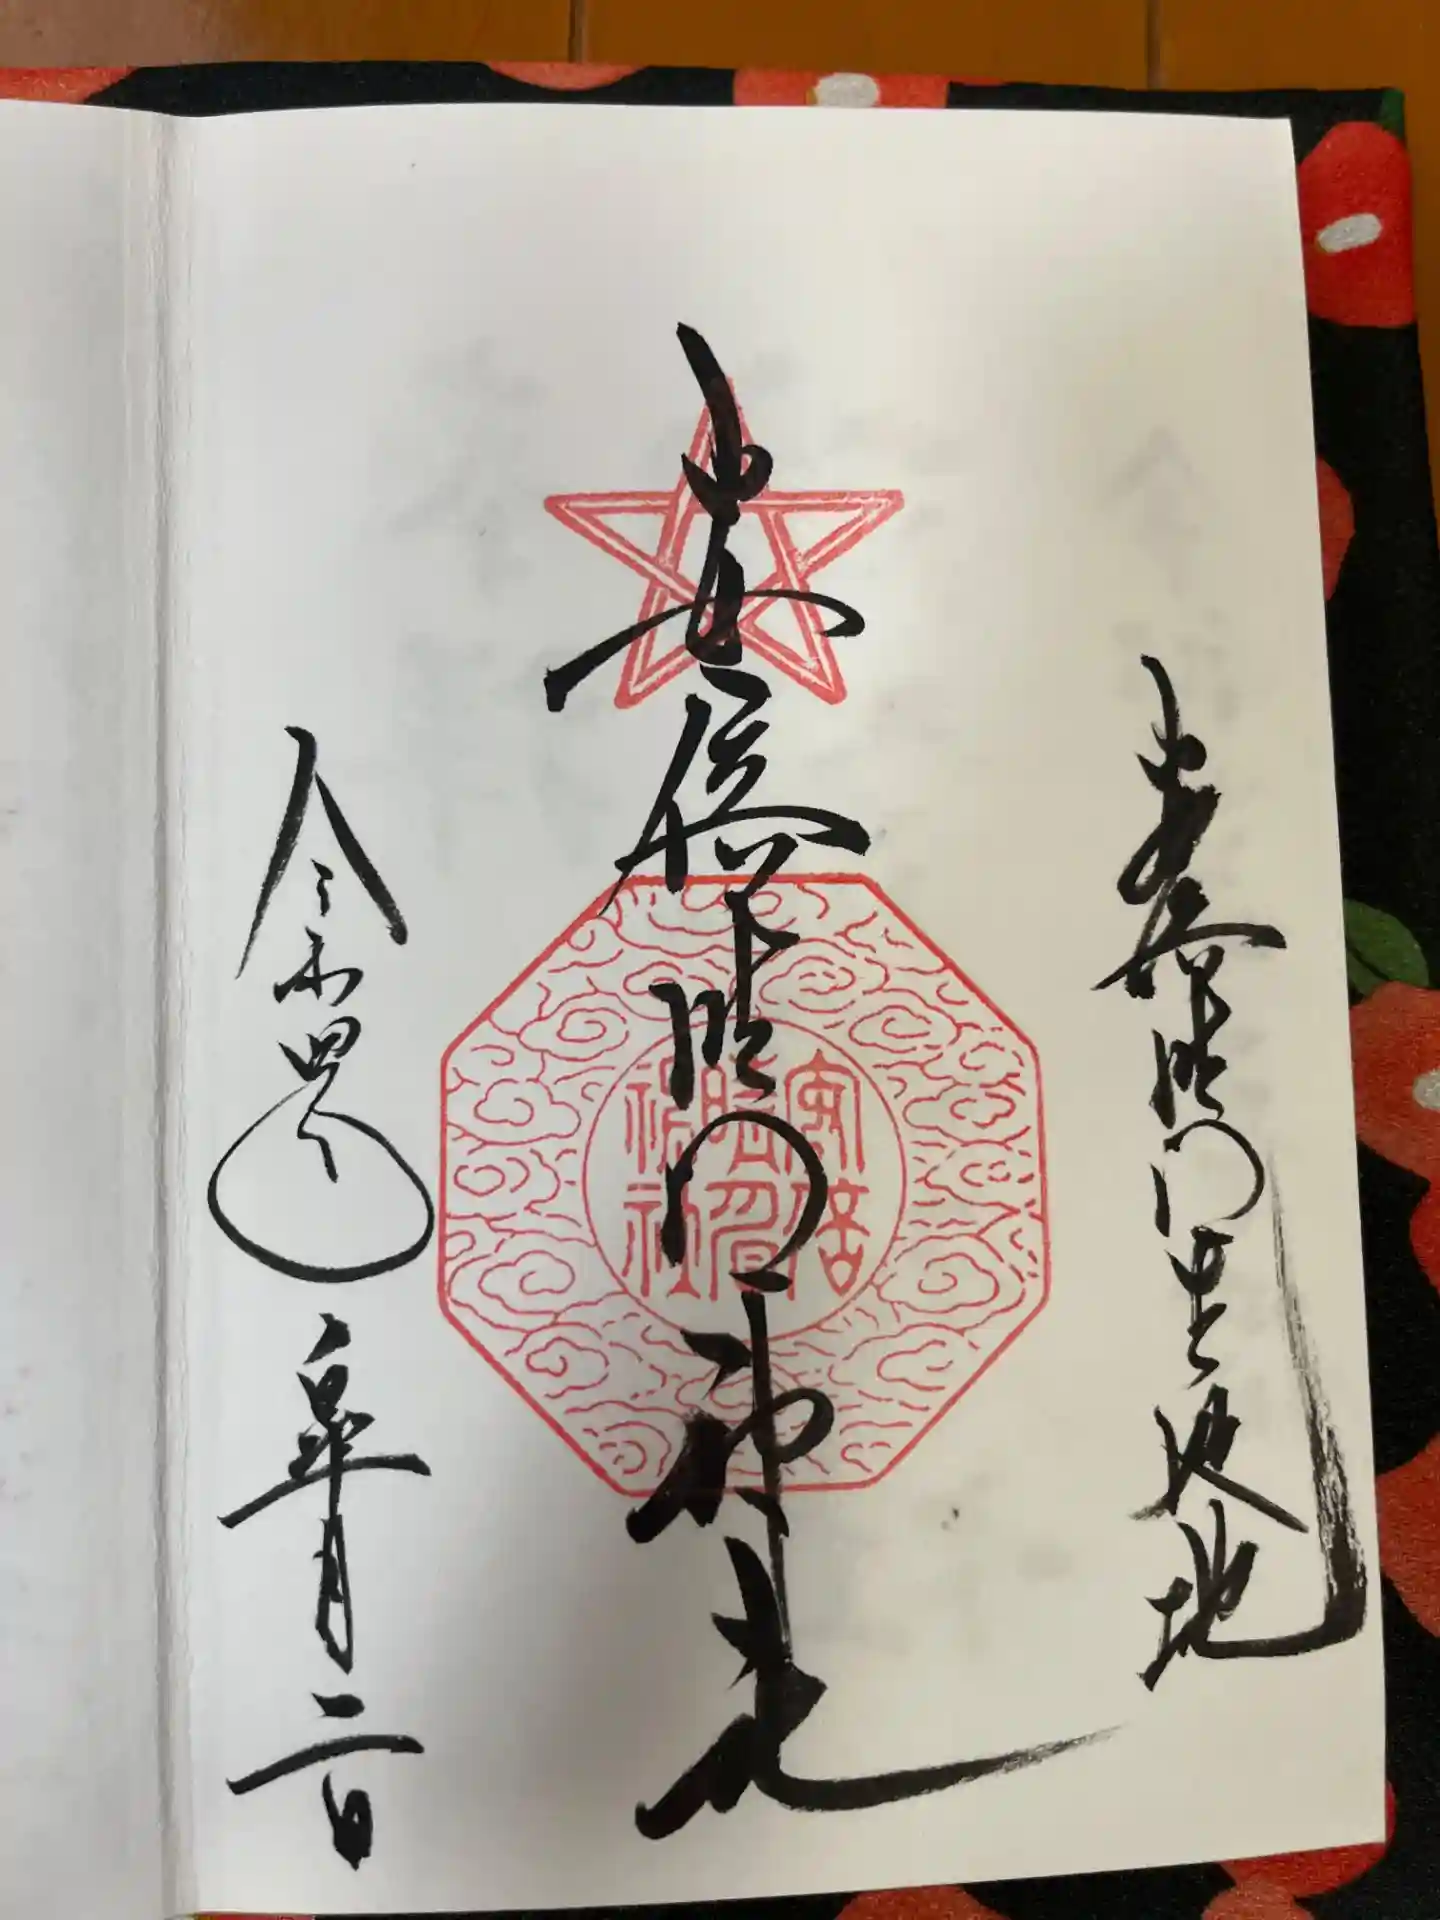 安倍晴明生誕地
安倍晴明神社
安倍
晴明
神社
令和四年皐月二日